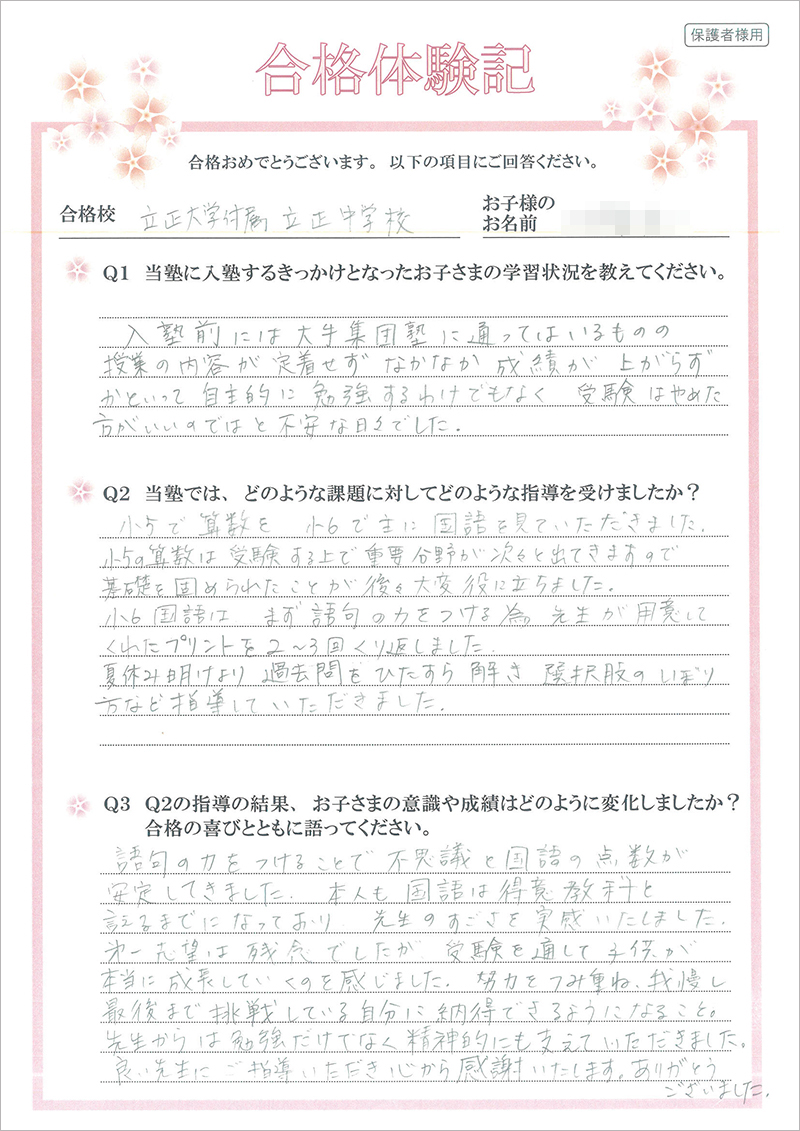 保護者様用
合格体験記
合格おめでとうございます。以下の項目にご回答ください。
合格校 立正大学付属 立正中学校
お子様の
お名前
Q1 当塾に入塾するきっかけとなったお子さまの学習状況を教えてください。
入塾前には大手集団塾に通ってはいるものの
授業の内容が定着せず なかなか成績が上がらず
かといって自主的に勉強するわけでもなく 受験はやめた
方がいいのではと不安な日々でした。
Q2 当塾では、どのような課題に対してどのような指導を受けましたか？
小5で算数を 小6で主に国語を見ていただきました。
小5の算数は受験する上で重要分野が次々と出てきますので
基礎を固められたことが後々大変役に立ちました。
小6国語は まず語句の力をつける為 先生が用意して
くれたプリントを2〜3回くり返しました。
夏休み明けより 過去問をひたすら解き 選択肢のしぼり
方など指導していただきました。
Q3 Q2の指導の結果、お子さまの意識や成績はどのように変化しましたか？
合格の喜びとともに語ってください。
語句の力をつけることで不思議と国語の点数が
安定してきました。本人も国語は得意教科と
言えるまでになっており 先生のすごさを実感いたしました。
第一志望は残念でしたが 受験を通して子供が
本当に成長していくのを感じました。努力をつみ重ね、我慢し
最後まで挑戦している自分に納得できるようになること。
先生からは勉強だけでなく精神的にも支えていただきました。
良い先生にご指導いただき心から感謝いたします。ありがとう
ございました。